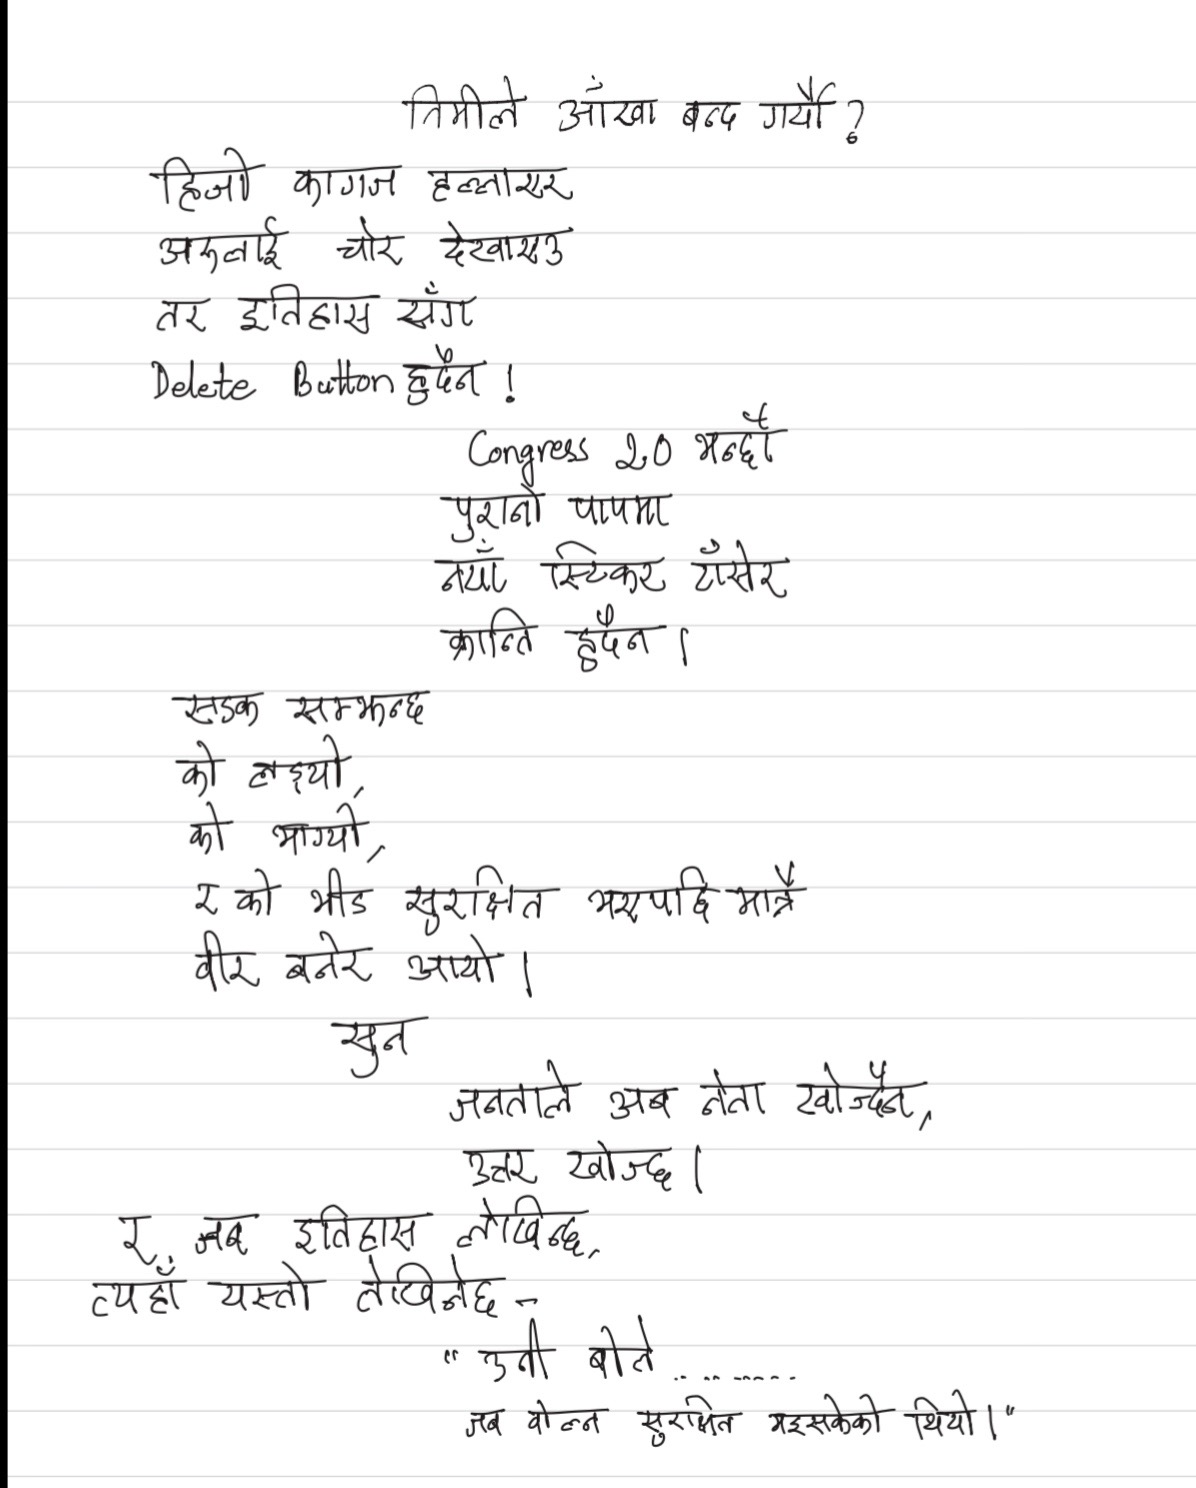 तिमीले आँखा बन्द गर्यौ ?
हिजो कागज हल्लाएर
अरुलाई चोर देखाएउ
तर इतिहास सँग
Delete Button हुदैन !
Congress 2.0 भन्छौ
पुरानो पापमा
नयाँ स्टिकर टाँसेर
क्रान्ति हुदैन ।
सडक सम्झन्छ
को लड्यो,
को भाग्यो,
र को भीड सुरक्षित भएपछि मात्रै
वीर बनेर आयो ।
सुन
जनताले अब नेता खोज्दैन,
उत्तर खोज्छ ।
र, जब इतिहास लेखिन्छ,
त्यहाँ यस्तो लेखिनेछ -
" उनी बोले ...........
जब बोल्न सुरक्षित भइसकेको थियो । "